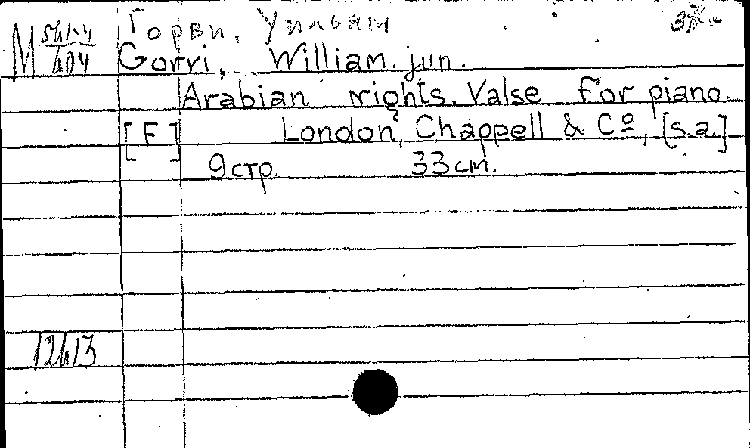 Горви, Уильям
M Gorvi, William. jun.
Arabian nights. Valse for piano.
[F] London, Chappell & Cº, [s.a.]
9 стр. 33 см.
12613